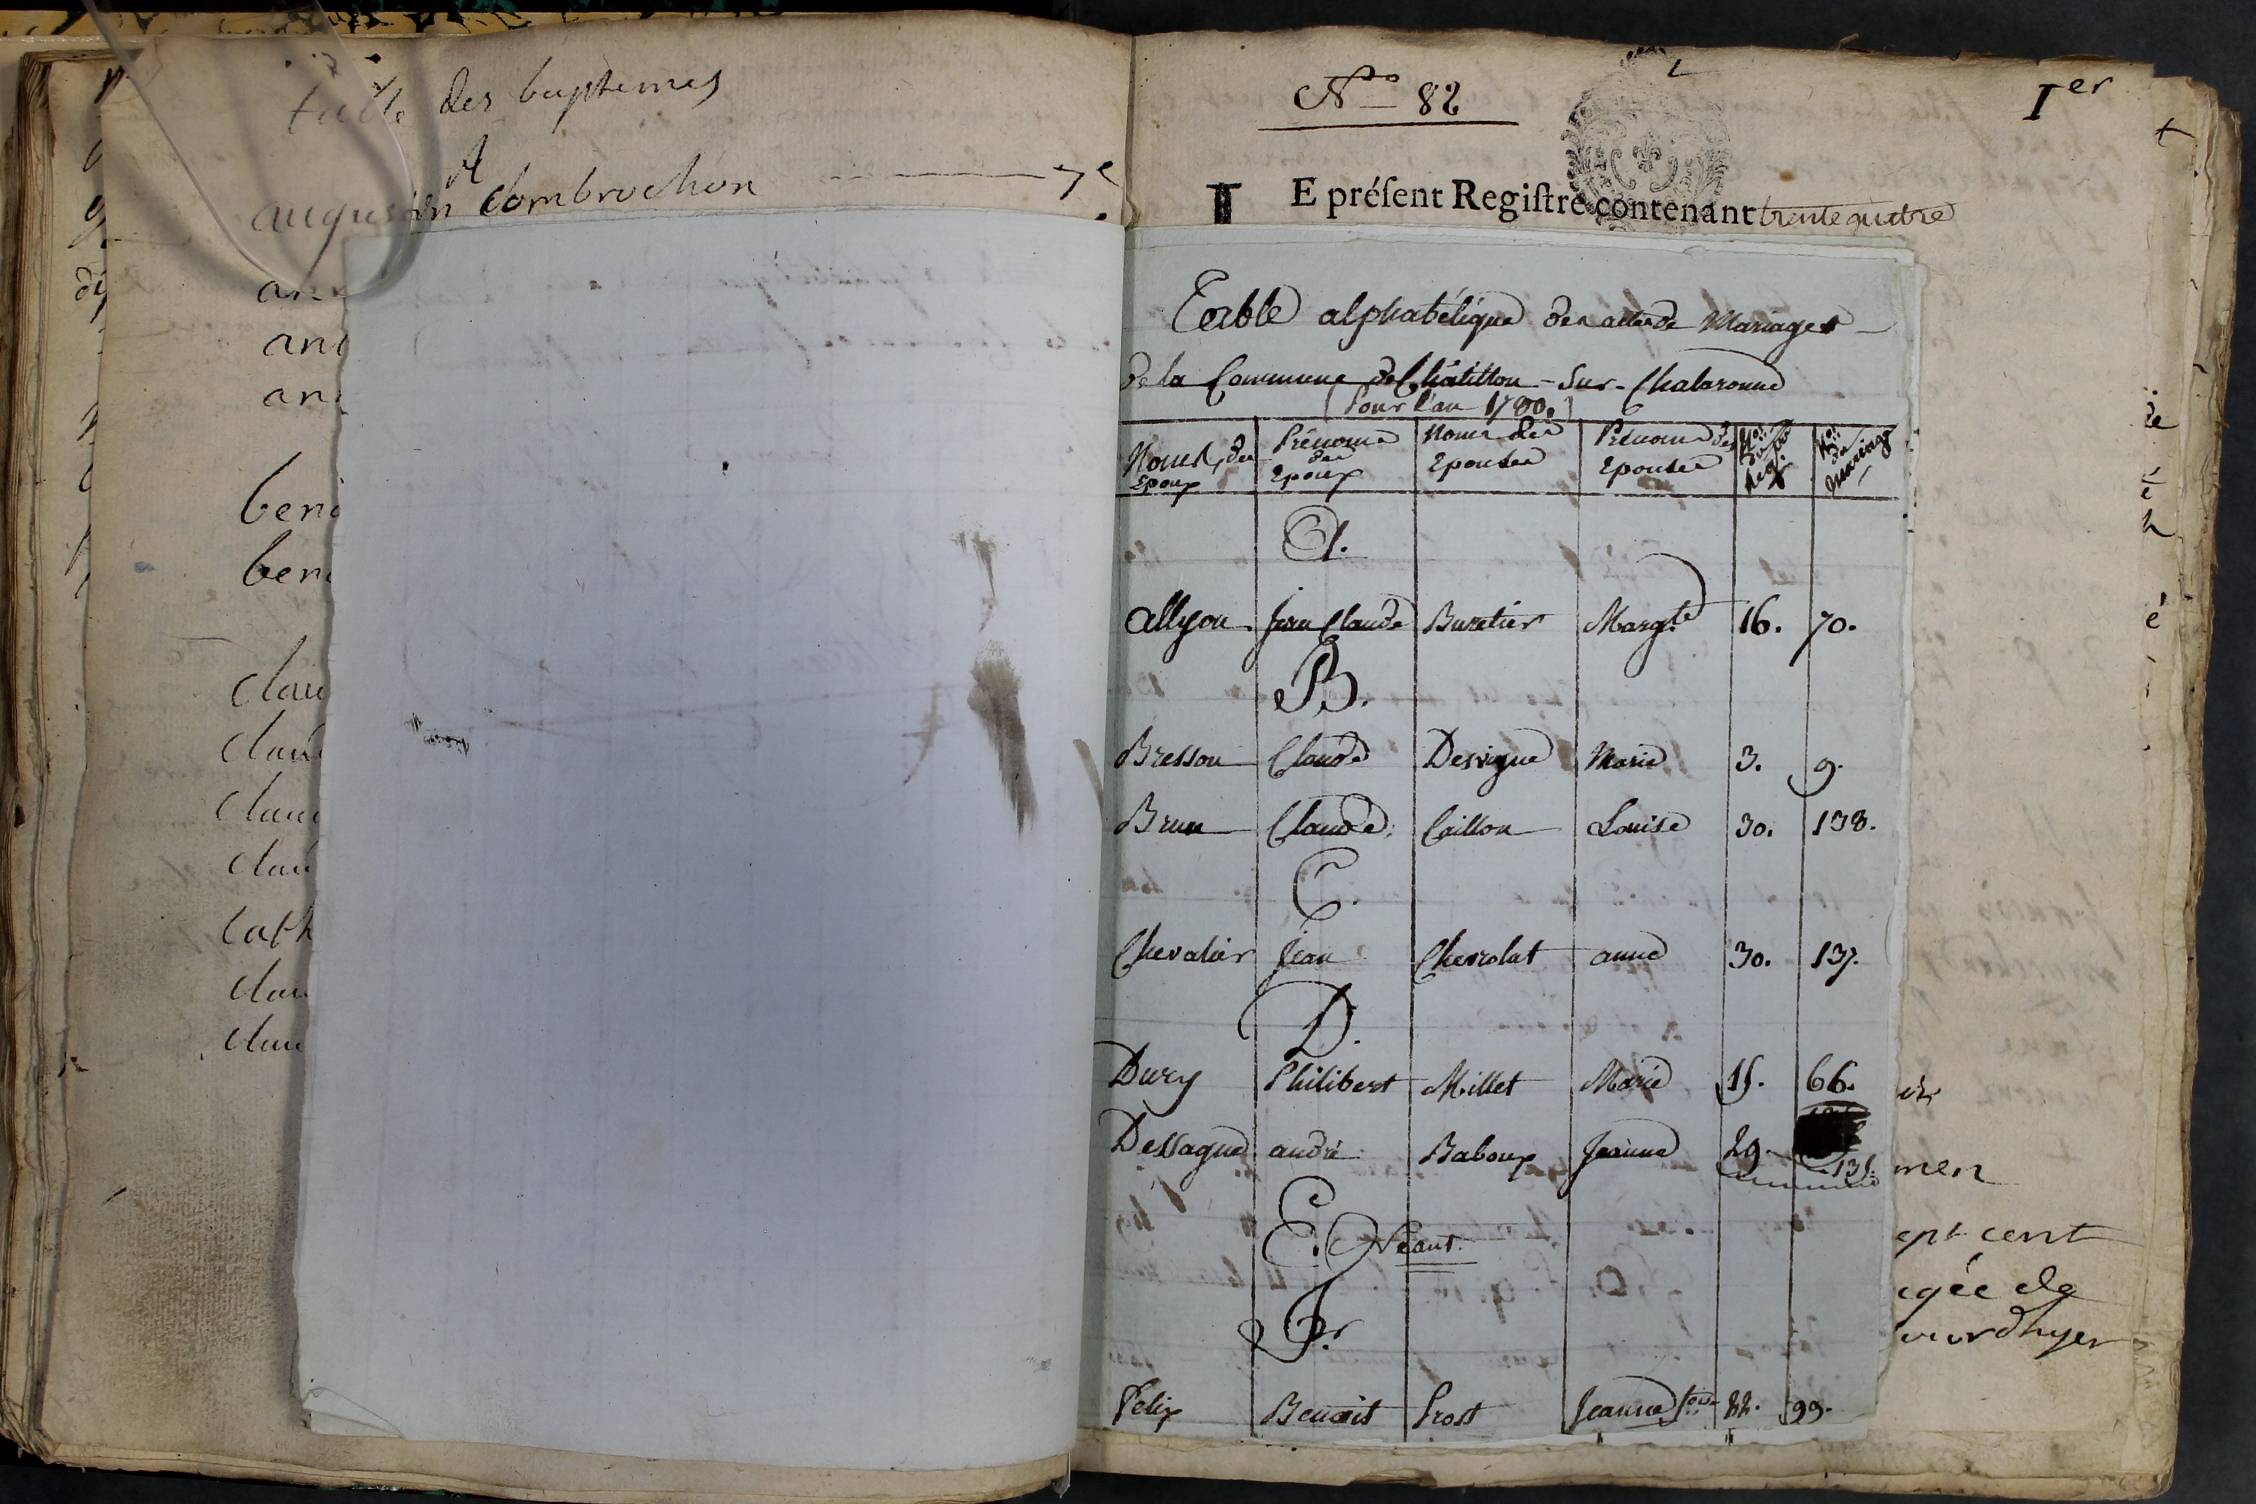 table des baptemes
A
augustin Combrochon 7e
an
ani
ani
beni
beni
clau
clau
clau
clau
cath
clau
clau
No 82
Ier
LE préſent Regiſtre contenant trente quatre
Table alphabétique des actes de Mariages
de la Commune de Châtillon-Sur-Chalaronne
Pour l'an 1780.
Noms des Epoux Prénoms des Epoux Noms des Epouses Prénoms des Epouses Nos du fo Reg. Nos de mariage
A.
allyon Jean Claude Buretier Margte 16. 70.
B.
Bresson Claude Desvigne Marie 3. 9.
Brun Claude Caillon Louise 30. 138.
C.
Chevalier Jean Chevrolat anne 30. 137.
D.
Dury Philibert Millet Marie 15. 66.
Dessagne andré Baboux Jeanne 29. 135.
E. Néant.
F.
Felix Benoit Prost Jeanne fçoise 22. 99.
men
ept cent
egée de